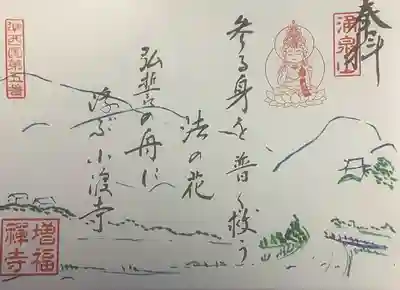 奉拝
湧泉山
参る身を普く救う
法の花
弘誓の舟に
浮ぶ小渡寺
準西国第五番
増福
禅寺